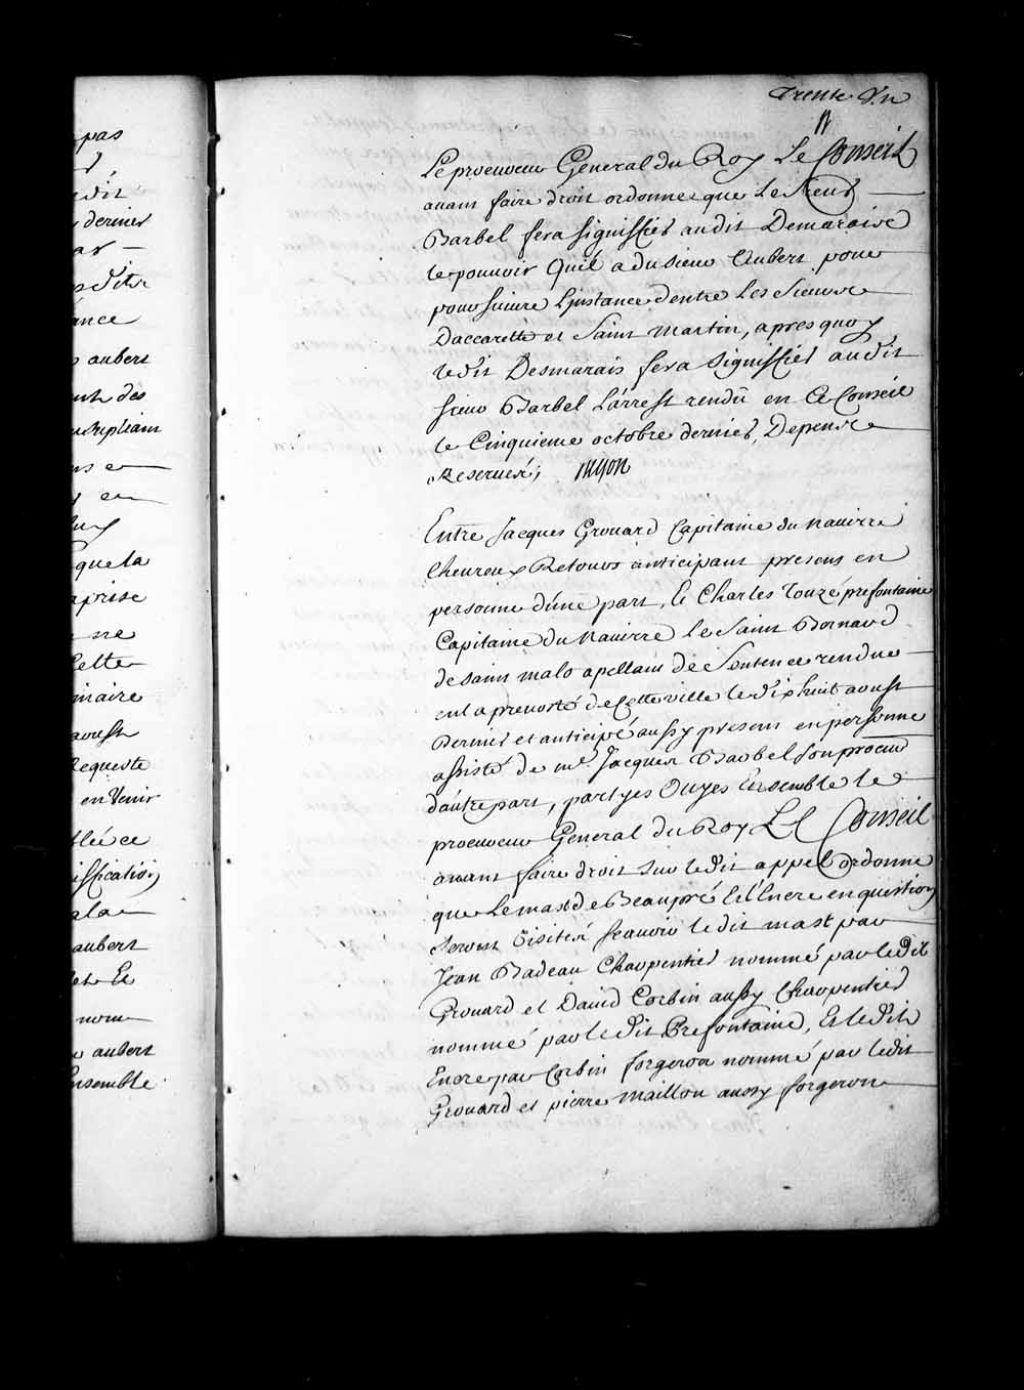 pas
dit
dernier
ar
dite
ance
aubert
des
supliant
ns
en
que la
aprise
ne
Cette
aoust
Requeste
en Venir
iffication
ala
aubert
et Le
nom
aubert
Ensemble
Trente Un
Le procureur General du Roy Le Conseil
avant faire droit ordonne que Le sieur
Barbel fera signiffier audit Demarais
le pouvoir Quil a du sieur Aubert pour
poursuivre Linstance dentre Les Sieurs
Daccarette et Saint Martin, apres quoy
ledit Desmarais fera signiffier audit
sieur Barbel Larrest rendu en Ce Conseil
le Cinquieme octobre dernier, Depens
Reservés;
Entre Jacques Grouard Capitaine du navirre
Lheureux Retours anticipant present en
personne dune part, Et Charles Touzé prefontaine
Capitaine du navirre le Saint Bernard
de saint malo apellant de Sentence rendue
en la prevosté de Cette ville le dix huit aoust
dernier et anticipé aussy present en personne
assisté de me. Jacques Barbel son procur
dautre part, partyes Ouyes Ensemble le
procureur General du Roy Le Conseil
avant faire droit sur ledit appel ordonne
que Le mast de Beaupré et l'Encre en question
seront Visités scavoir ledit mast par
Jean Badeau Charpentier nommé par ledit
Grouard et David Corbin aussy Charpentier
nommé par ledit Prefontaine, Et ledit
Encre par Corbin forgeron nommé par ledit
Grouard et pierre Maillou aussy forgeron